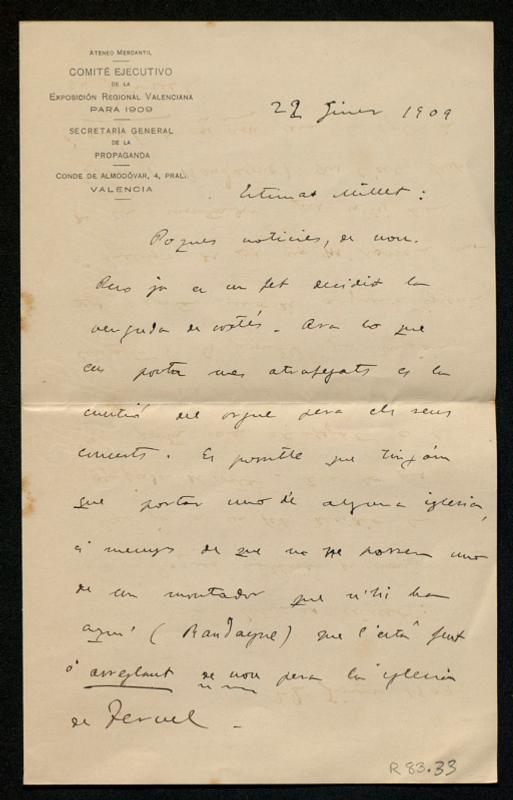 ATENEO MERCANTIL
COMITÉ EJECUTIVO
DE LA
EXPOSICIÓN REGIONAL VALENCIANA
PARA 1909
SECRETARÍA GENERAL
DE LA
PROPAGANDA
CONDE DE ALMODÓVAR, 4, PRAL.
VALENCIA
22 Giner 1909
Estimat Millet:
Poques noticies, de nou.
Pero ja es un fet decidit la
venguda de vostés. Ara lo que
ens porta mes atrafegats es la
cuestió del orgue pera els seus
concerts. Es posible que tingám
que portar uno de alguna iglesia,
á menys de que no posem uno
de un montador que n'hi ha
aquí (            ) que l'está fent
ó arreglant de nou pera la iglesia
de Teruel_
R 83.33